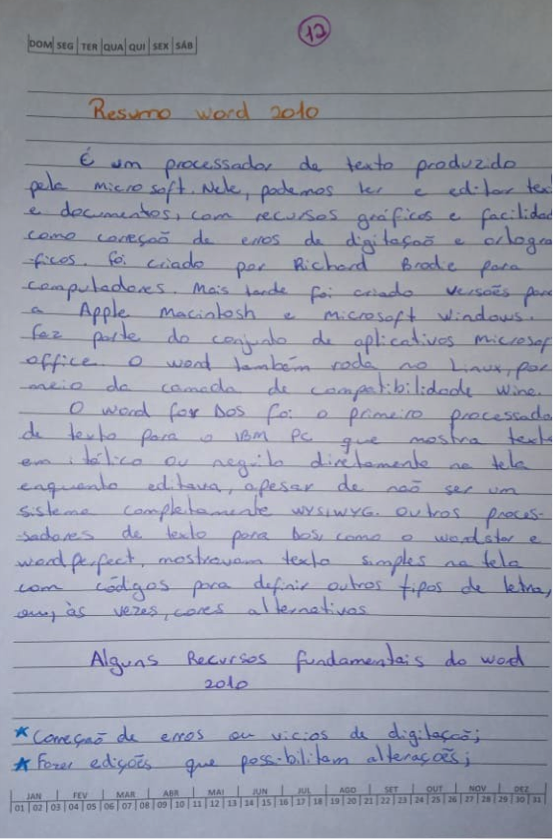 12
DOM SEG TER QUA QUI SEX SÁB
Resumo word 2010
É um processador de texto produzido
pela microsoft. Nele, podemos ler e editar tex
e documentos, com recursos gráficos e facilidad
como correção de erros de digitação e ortogra
-ficos. foi criado por Richard Brodie para
computadores. Mais tarde foi criado versões para
a Apple Macintosh e microsoft windows.
faz parte do conjunto de aplicativos microsof
office. O word também roda no Linux, por
meio da camada de compatibilidade wine.
O word for DOS foi o primeiro processado
de texto para o IBM PC que mostra texto
em itálico ou negrito diretamente na tela
enquanto editava, apesar de não ser um
sistema completamente WYSIWYG. Outros proces-
-sadores de texto para DOS, como o wordstar e
wordperfect, mostravam texto simples na tela
com códigos para definir outros tipos de letra,
ou, às vezes, cores alternativos
Alguns Recursos fundamentais do word
2010
★ Correção de erros ou vicios de digitação;
★ Fazer edições que possibilitam alterações;
JAN FEV MAR ABR MAI JUN JUL AGO SET OUT NOV DEZ
01 02 03 04 05 06 07 08 09 10 11 12 13 14 15 16 17 18 19 20 21 22 23 24 25 26 27 28 29 30 31